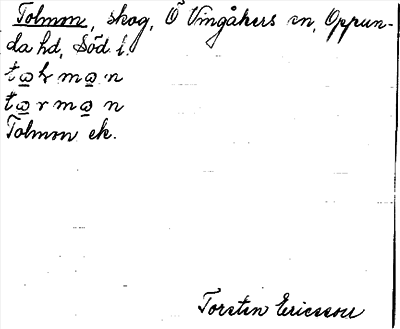 Tolmon, skog, Ö Vingåkers sn, Oppun-
da hd, Söd l.
Tolmon ek.
Torsten Ericsson